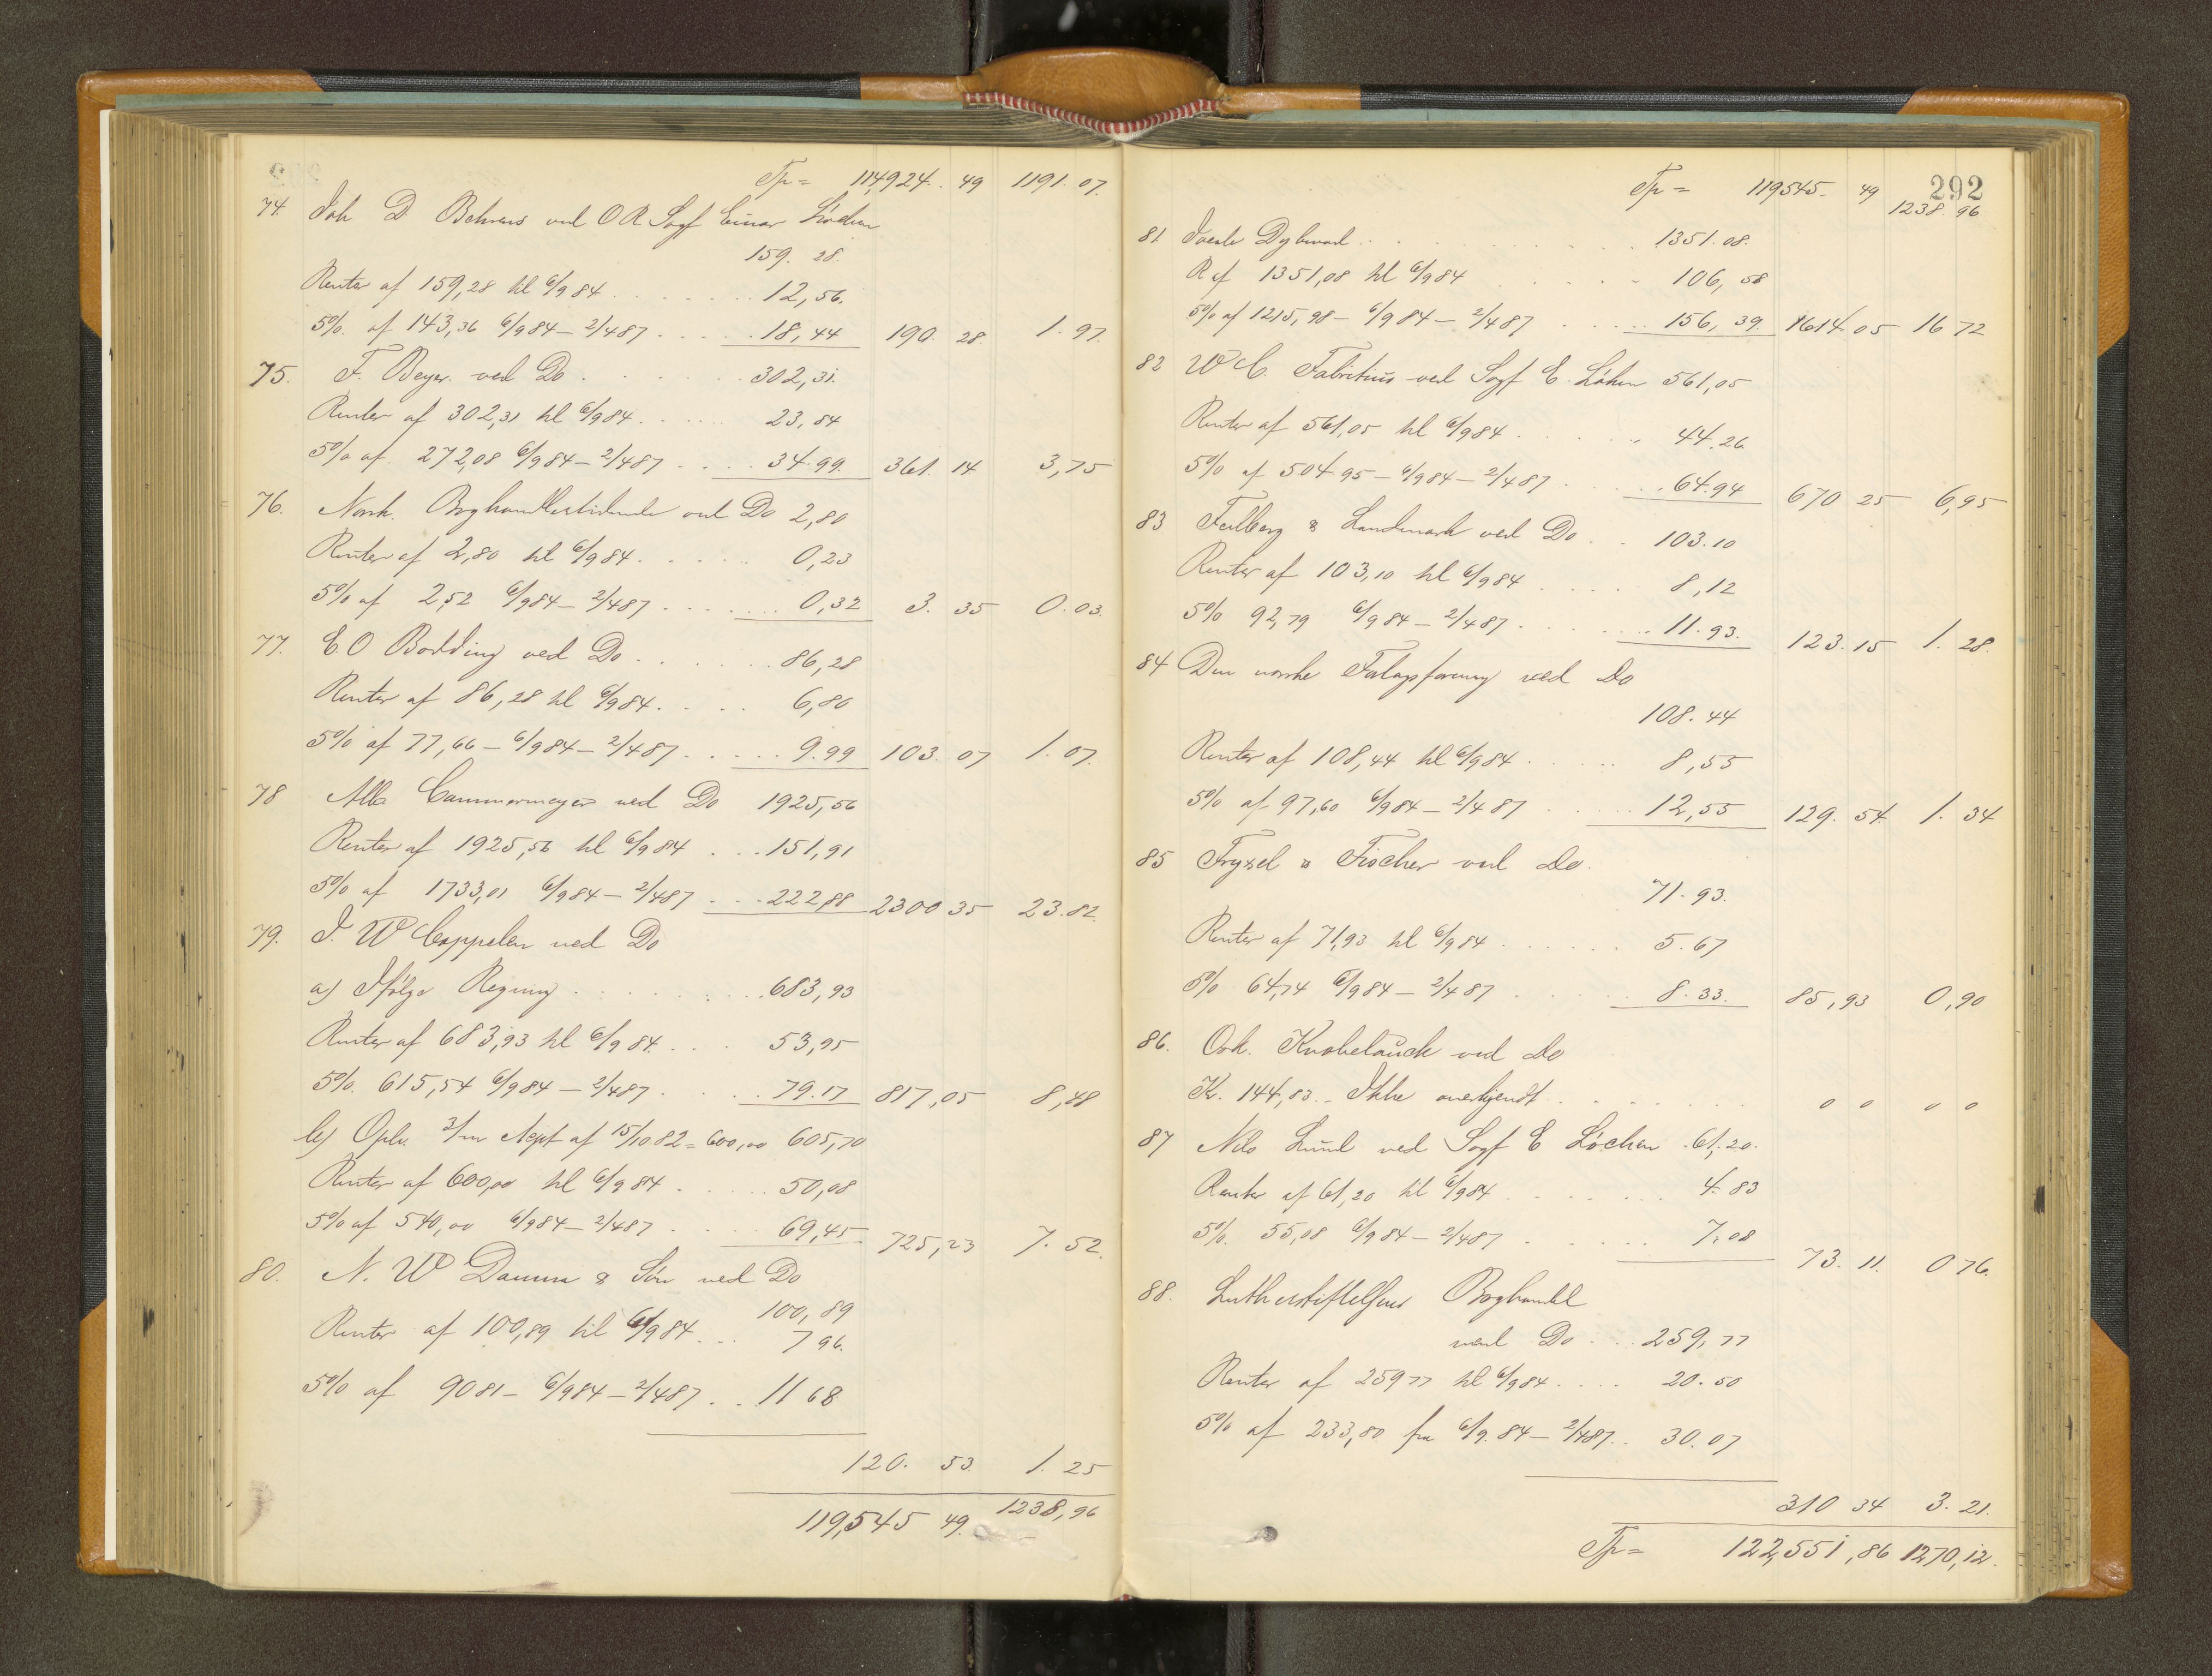 Tp = 114,924. 49 1191. 07.
74. Joh D. Behrens ved O R Sagf Einar Löchen
159. 28.
Renter af 159,28 til 6/9 84 . . . . . . . 12,56.
5%. af 143,36 6/9 84 – 2/4 87 . . . . . 18,44 190. 28. 1. 97.
75. F. Beyer ved Do . . . . . . 302,31.
Renter af 302,31 til 6/9 84 . . . . . 23,84
5% af 272,08 6/9 84 – 2/4 87 . . . . 34.99. 361. 14 3,75
76. Norsk. Boghandlertidende ved Do 2,80
Renter af 2,80 til 6/9 84 . . . . . 0,23
5% af 2,52 6/9 84 – 2/4 87 . . . . . . . 0,32 3. 35 0.03.
77. E. O Bodding ved Do . . . . . . 86,28
Renter af 86,28 til 6/9 84. . . . . 6,80
5% af 77,66 – 6/9 84 – 2/4 87 . . . . . 9.99 103. 07 1. 07.
78 Alb Cammermeyer ved Do 1925,56
Renter af 1925,56 til 6/9 84 . . . 151,91
5% af 1733,01 6/9 84 – 2/4 87 . . . 222,88 2300 35 23.82.
79. J. W Cappelen ved Do
a) Ifölge Regning . . . . . . . . 683,93
Renter af 683,93 til 6/9 84. . . . 53,95
5%. 615,54 6/9 84 – 2/4 87 . . . . 79.17 817,05 8,48
b) Oplv. 3/m Acpt af 15/10 82 = 600,00 605,70
Renter af 600,00 til 6/9 84 . . . . . 50,08
5% af 540,00 6/9 84 – 2/4 87 . . . . . 69,45 725,23 7. 52.
80. N. W Damm & Sön ved Do
100,89
Renter af 100,89 til 6/9 84 . . . 7 96.
5% af 90 81 – 6/9 84 – 2/4 87 . . . 11 68
120. 53. 1. 25
119,545 49. 1238,96
292
Tp = 119545 – 49
1238. 96
81. Jacob Dybwad . . . . . . . . . 1351. 08.
R af 1351,08 til 6/9 84 . . . . . 106, 58
5% af 1215,98 – 6/9 84 – 2/4 87 . . . . . 156, 39. 1614. 05 16 72
82 W C. Fabritius ved Sagf E. Löchen 561,05
Renter af 561,05 til 6/9 84 . . . . . . 44.26
5% af 504 95 – 6/9 84 – 2/4 87 . . . . . . 64.94 670 25 6,95
83 Feilberg & Landmark ved Do . . 103.10
Renter af 103,10 til 6/9 84 . . . . . 8,12
5% 92,79 6/9 84 – 2/4 87 . . . . . . . 11.93. 123. 15 1. 28.
84 Den norske Forlagsforening ved Do
108. 44
Renter af 108,44 til 6/9 84 . . . . . 8,55
5% af 97,60 6/9 84 – 2/4 87 . . . . . 12,55 129. 54. 1. 34
85 Fryxel & Fischer ved Do.
71. 93.
Renter af 71,93 til 6/9 84 . . . . . . 5. 67
5% 64,74 6/9 84 – 2/4 87 . . . . . 8. 33. 85, 93 0, 90
86. Osk. Knobelauch ved Do
Kr. 144,83. . Ikke anerkjendt . . . . . . . 0 0 0 0
87 Nils Lund ved Sagf E Löchen . 61. 20.
Renter af 61,20 til 6/9 84 . . . . . . . 4. 83
5%. 55,08 6/9 84 – 2/4 87 . . . . . . 7.08
73. 11. 0 76.
88. Lutherstiftelsens Boghandel
ved Do . . . 259, 77
Renter af 259 77 til 6/9 84 . . . . 20. 50
5% af 233,80 fra 6/9. 84 – 2/4 87. . 30. 07
310 34 3. 21.
Tp = 122,551, 86 1270,12.